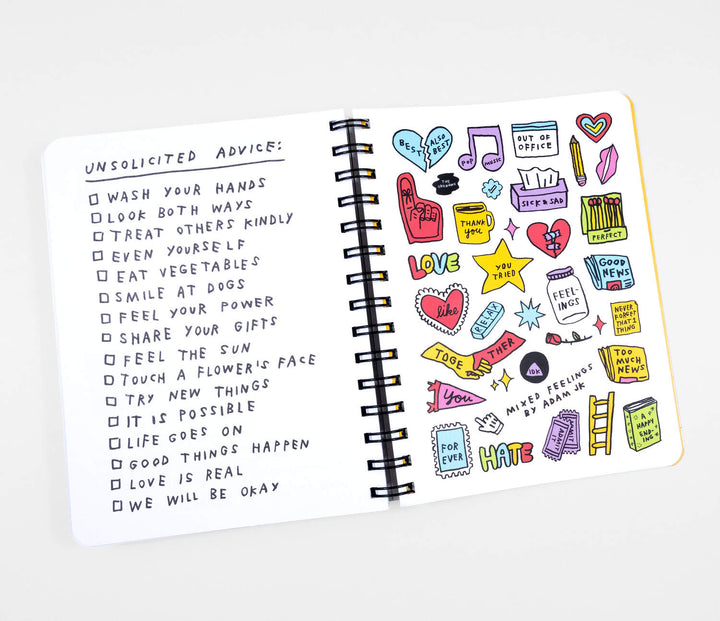 UNSOLICITED ADVICE:
WASH YOUR HANDS
LOOK BOTH WAYS
TREAT OTHERS KINDLY
EVEN YOURSELF
EAT VEGETABLES
SMILE AT DOGS
FEEL YOUR POWER
SHARE YOUR GIFTS
FEEL THE SUN
TOUCH A FLOWER'S FACE
TRY NEW THINGS
IT IS POSSIBLE
LIFE GOES ON
GOOD THINGS HAPPEN
LOVE IS REAL
WE WILL BE OKAY
BEST
ALSO
BEST
POP
MUSIC
OUT OF
OFFICE
SICK & SAD
THANK
YOU
PERFECT
LOVE
YOU
TRIED
FEEL-
INGS
GOOD
NEWS
like
RELAX
NEVER
FORGET
THAT 1
THING
TOGE
THER
IDK
TOO
MUCH
NEWS
You
MIXED FEELINGS
BY ADAM JK
FOR
EVER
HATE
ADMIT
IT
A
HAPPY
END-
ING